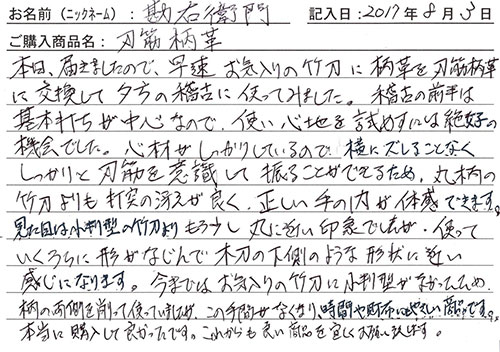 お名前(ニックネーム):勘右衛門 記入日:2017年8月3日
ご購入商品名:刃筋柄革
本日、届きましたので、早速お気入りの竹刀に柄革を刃筋柄革
に交換して夕方の稽古に使ってみました。稽古の前半は
基本打ちが中心なので、使い心地を試めすには絶好の
機会でした。心材がしっかりしているので、横にズレることなく
しっかりと刃筋を意識して振ることができるため、丸柄の
竹刀よりも打突の冴えが良く、正しい手の内が体感できます。
見た目は小判型の竹刀よりもう少し丸に近い印象でしたが、使って
いくうちに形がなじんで木刀の下側のような形状に近い
感じになります。今まではお気入りの竹刀に小判型がなかったため、
柄の両側を削って使っていましたが、この手間がなくなり、時間や財布にやさしい商品です。
本当に購入して良かったです。これからも良い商品を宜しくお願い致します。